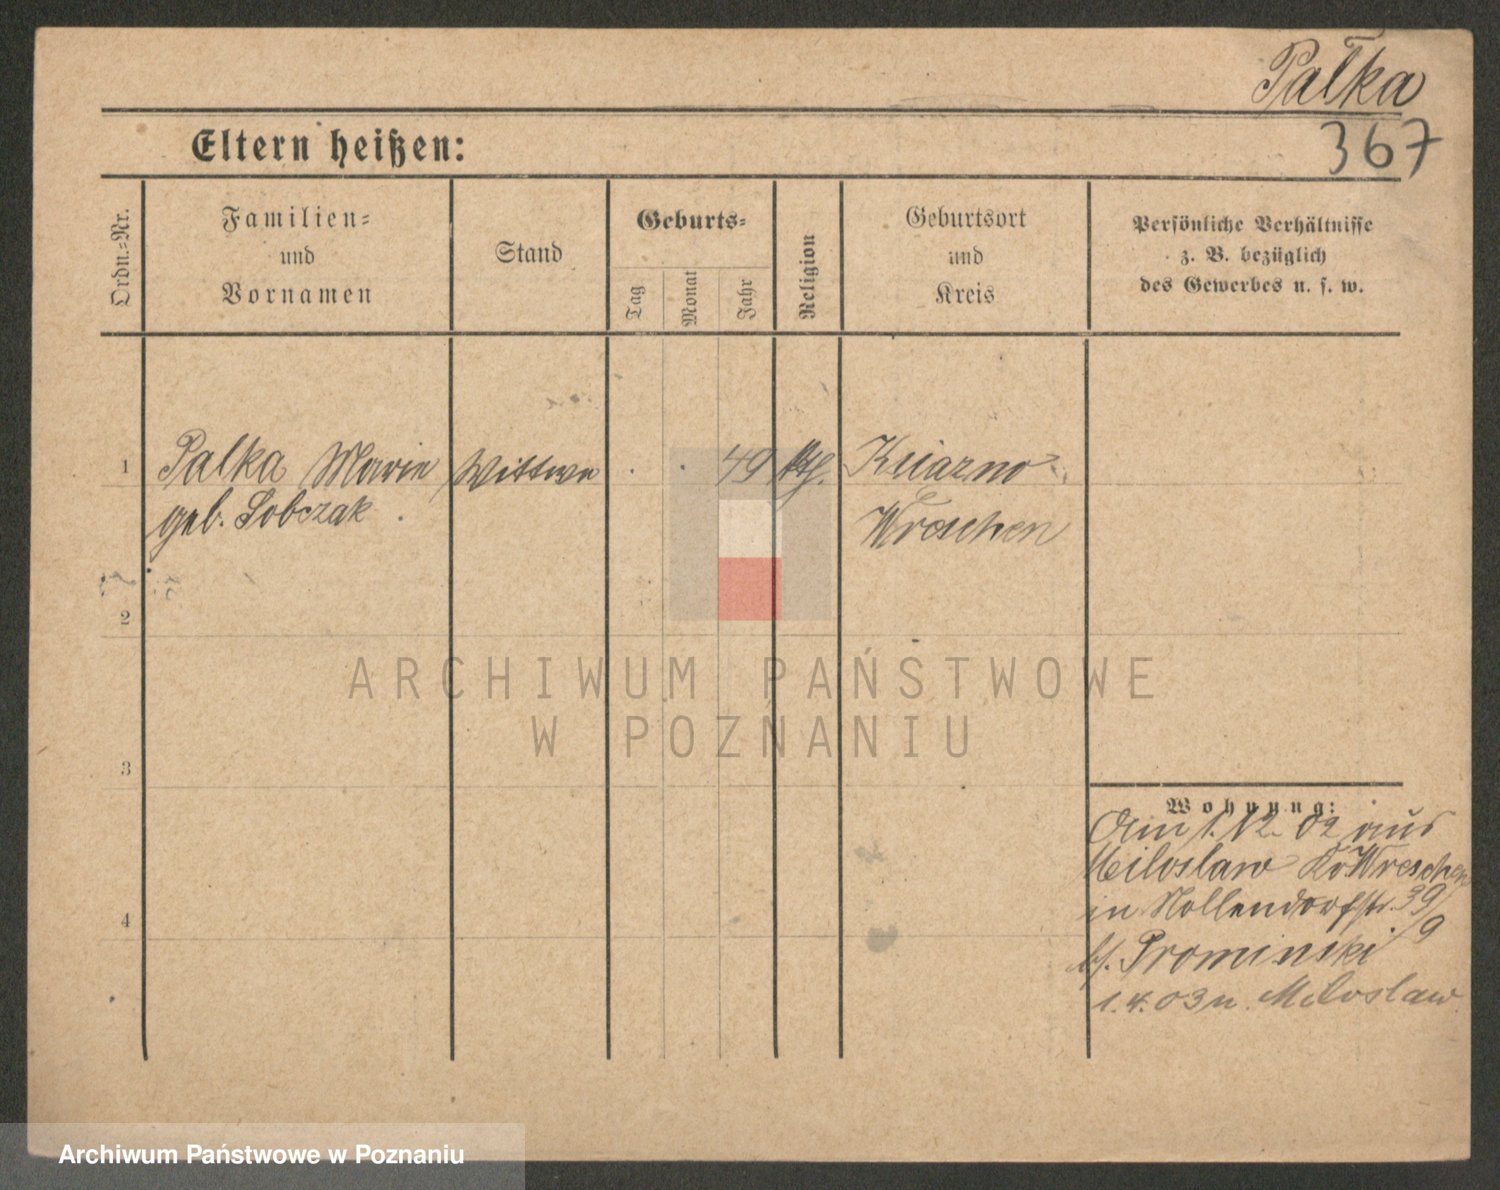 Pałka
367
Eltern heißen:
Ordn.-Nr.
Familien-
und
Vornamen
Stand
Geburts-
Tag
Monat
Jahr
Religion
Geburtsort
und
Kreis
Persönliche Verhältnisse
z. B. bezüglich
des Gewerbes u. s. w.
1 Palka Marie Wittwe 49 kth. Ksiazno
geb. Sobczak Wreschen
2
3
4
ARCHIWUM PAŃSTWOWE
W POZNANIU
Wohnung:
Am 1. 12. 02 aus
Miloslaw Kr Wreschen
in Nollendorfstr. 39/9
b/. Prominski
1. 4. 03 n. Miloslaw
Archiwum Państwowe w Poznaniu